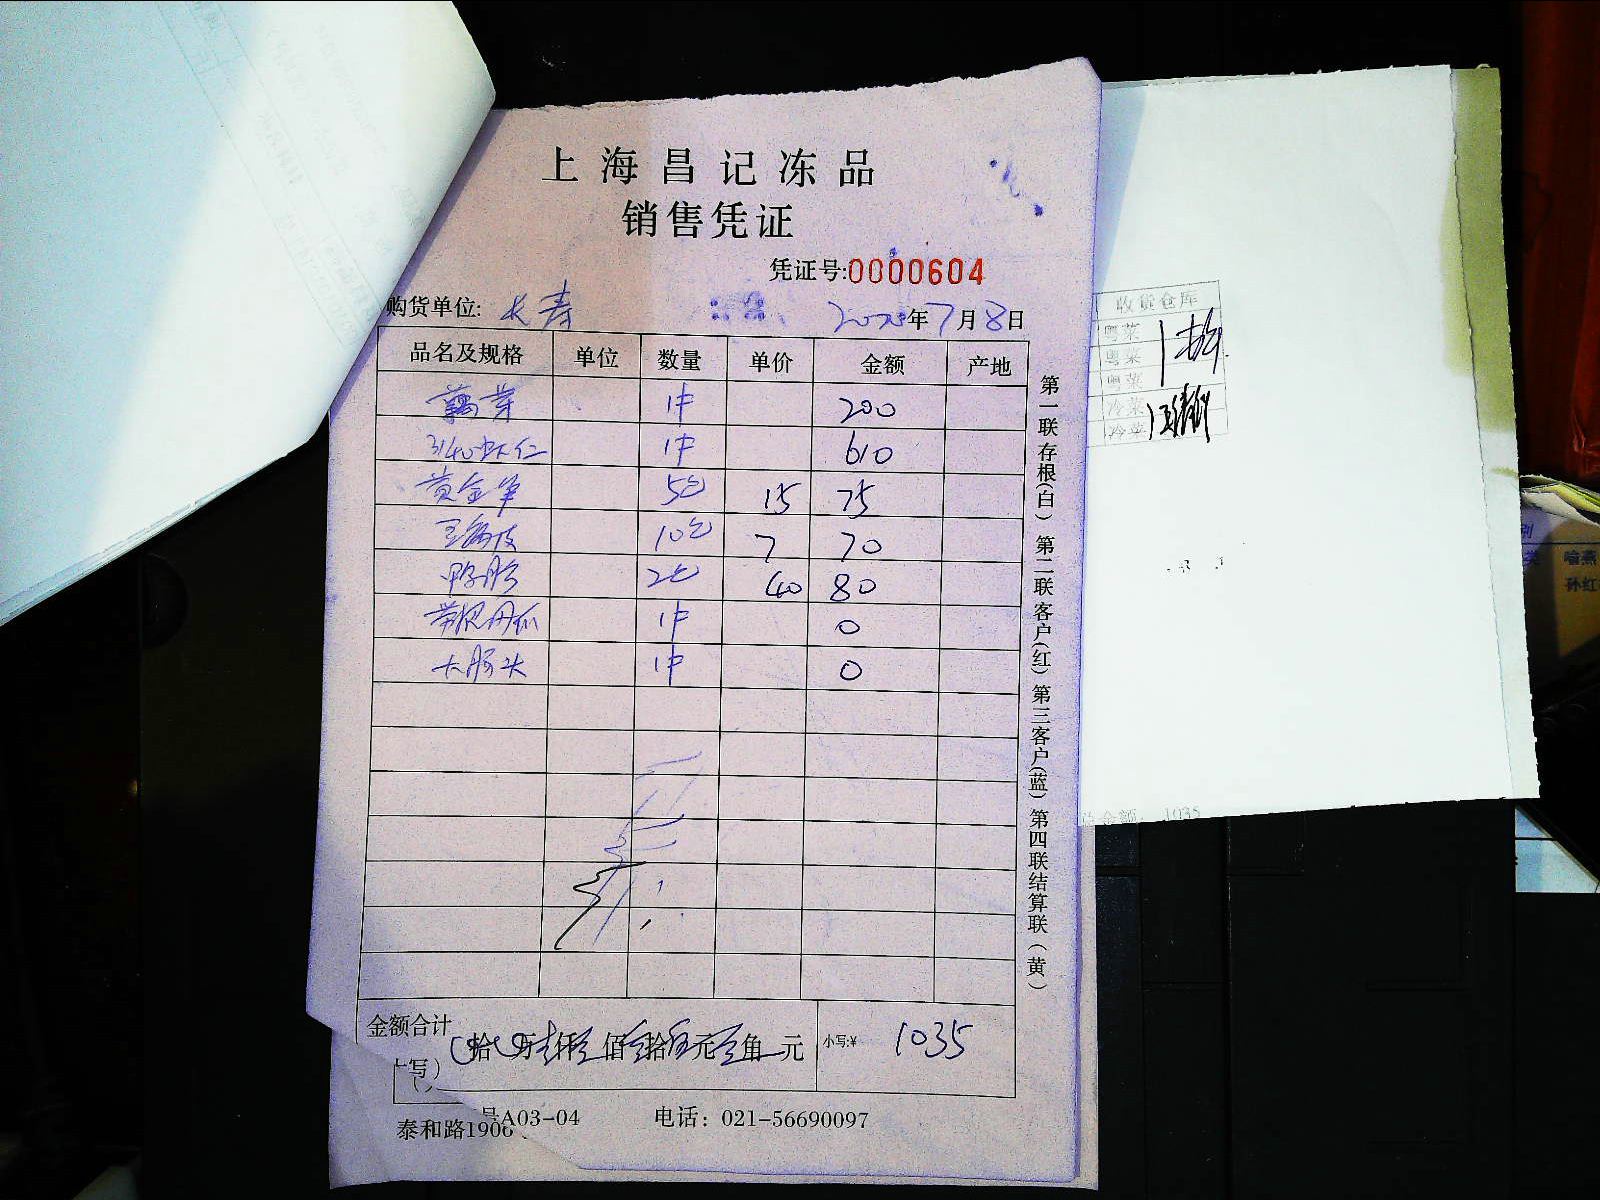 上海昌记冻品
销售凭证
凭证号:0000604
购货单位: 长寿 2020年7月8日
品名及规格 单位 数量 单价 金额 产地
藕芽 1件 200
3140虾仁 1件 610
黄金笋 5包 15 75
10包 7 70
鸭肠 2包 40 80
1件 0
大肠头 1件 0
金额合计
写) 拾 万 仟 佰 拾 元 角 元 小写:¥ 1035
泰和路1906 号A03-04 电话: 021-56690097
第一联存根(白) 第二联客户(红) 第三客户(蓝) 第四联结算联(黄)
收货仓库
粤菜
粤菜
粤菜
冷菜
冷菜
金额 1035
喻燕
孙红